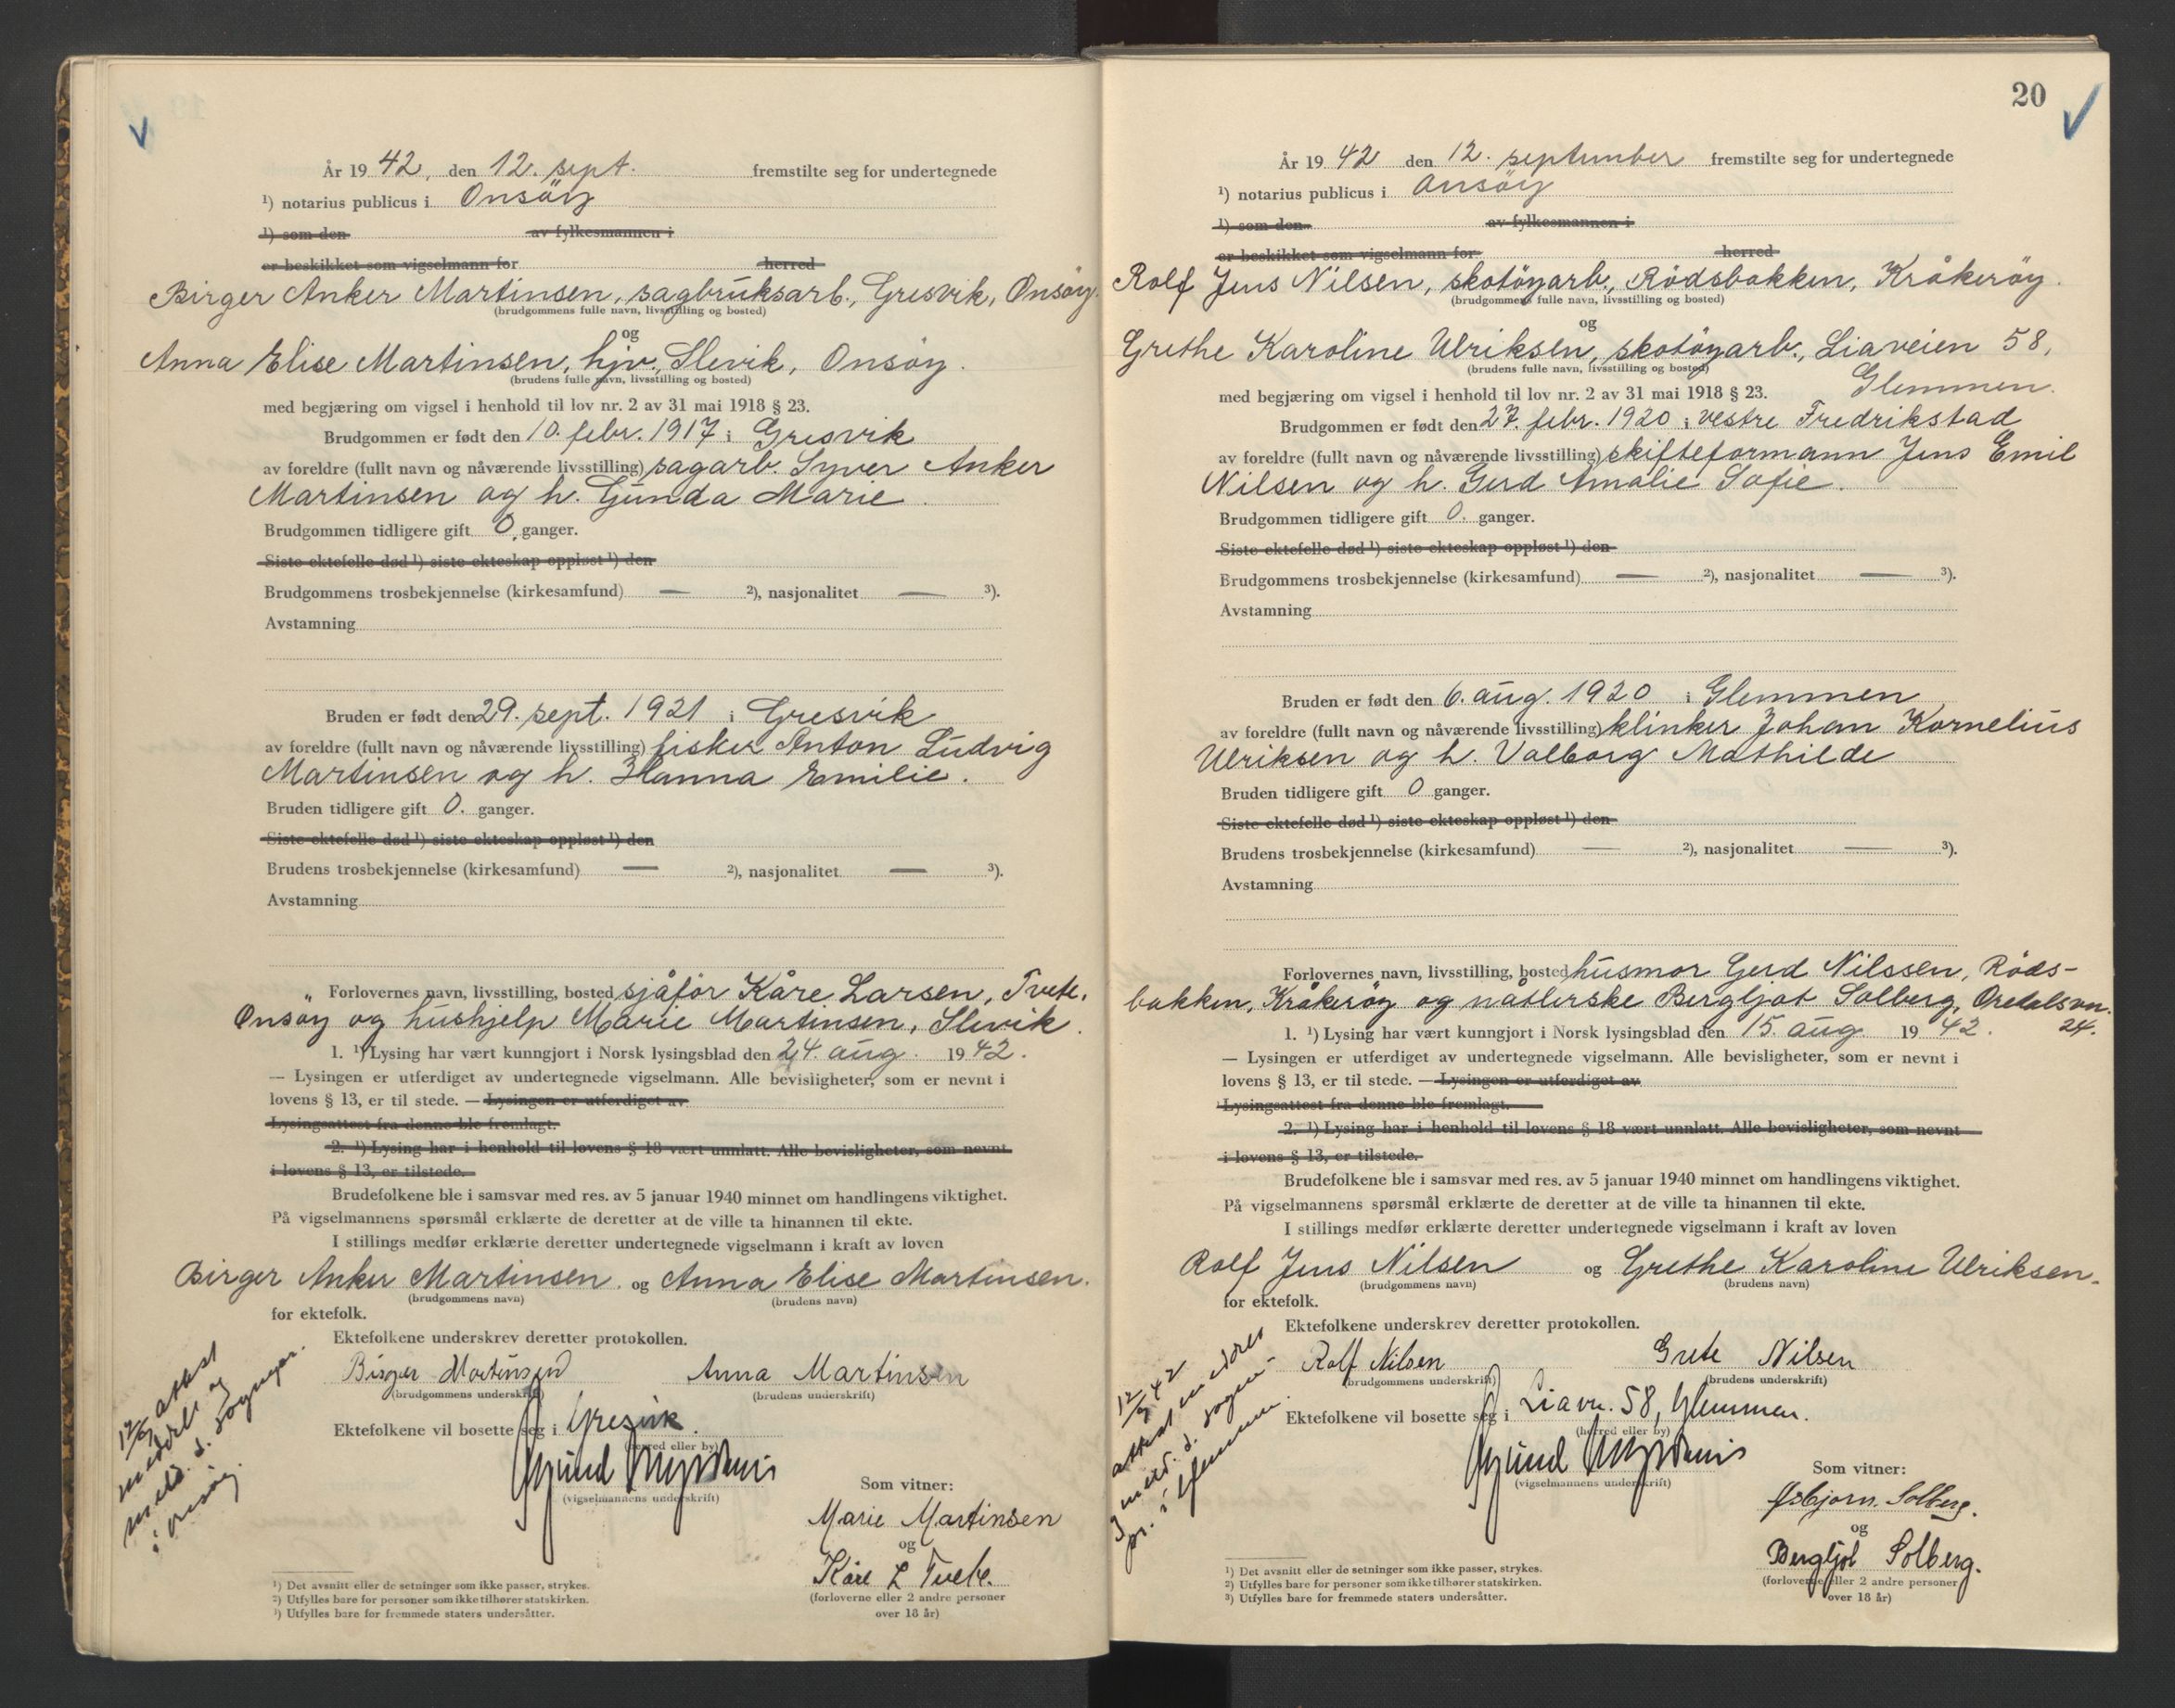 År 19 42, den 12. sept. fremstilte seg for undertegnede
¹) notarius publicus i Onsöy
¹) som den av fylkesmannen i
er beskikket som vigselmann for herred
Birger Anker Martinsen, sagbruksarb., Gresvik, Onsöy.
(brudgommens fulle navn, livsstilling og bosted)
og
Anna Elise Martinsen, hjv., Slevik, Onsöy.
(brudens fulle navn, livsstilling og bosted)
med begjæring om vigsel i henhold til lov nr. 2 av 31 mai 1918 § 23.
Brudgommen er født den 10. febr. 1917 i Gresvik
av foreldre (fullt navn og nåværende livsstilling) sagarb. Syver Anker
Martinsen og h. Gunda Marie.
Brudgommen tidligere gift 0. ganger.
Siste ektefelle død ¹) siste ekteskap oppløst ¹) den
Brudgommens trosbekjennelse (kirkesamfund) — ²), nasjonalitet — ³).
Avstamning
Bruden er født den 29. sept. 1921 i Gresvik
av foreldre (fullt navn og nåværende livsstilling) fisker Anton Ludvig
Martinsen og h. Hanna Emilie.
Bruden tidligere gift 0. ganger.
Siste ektefelle død ¹) siste ekteskap oppløst ¹) den
Brudens trosbekjennelse (kirkesamfund) — ²), nasjonalitet — ³).
Avstamning
Forlovernes navn, livsstilling, bosted sjåför Kåre Larsen, Tvete,
Onsöy og hushjelp Marie Martinsen, Slevik.
1. ¹) Lysing har vært kunngjort i Norsk lysingsblad den 24. aug. 19 42.
— Lysingen er utferdiget av undertegnede vigselmann. Alle bevisligheter, som er nevnt i
lovens § 13, er til stede. — Lysingen er utferdiget av
Lysingsattest fra denne ble fremlagt.
2. ¹) Lysing har i henhold til lovens § 18 vært unnlatt. Alle bevisligheter, som nevnt
i lovens § 13, er tilstede.
Brudefolkene ble i samsvar med res. av 5 januar 1940 minnet om handlingens viktighet.
På vigselmannens spørsmål erklærte de deretter at de ville ta hinannen til ekte.
I stillings medfør erklærte deretter undertegnede vigselmann i kraft av loven
Birger Anker Martinsen og Anna Elise Martinsen.
(brudgommens navn) (brudens navn)
for ektefolk.
Ektefolkene underskrev deretter protokollen.
Birger Martinsen Anna Martinsen
(brudgommens underskrift) (brudens underskrift)
Ektefolkene vil bosette seg i Gresvik.
(herred eller by)
(vigselmannens underskrift)
Som vitner:
Marie Martinsen
og
Kåre L Tvete.
(forloverne eller 2 andre personer
over 18 år)
12/9 attest
meddelt og
meld. t. sognepr.
i Onsöy.
¹) Det avsnitt eller de setninger som ikke passer, strykes.
²) Utfylles bare for personer som ikke tilhører statskirken.
³) Utfylles bare for fremmede staters undersåtter.
20
År 19 42 den 12. september fremstilte seg for undertegnede
¹) notarius publicus i Onsöy
¹) som den av fylkesmannen i
er beskikket som vigselmann for herred
Rolf Jens Nilsen, skotöyarb., Rödsbakken, Kråkeröy.
(brudgommens fulle navn, livsstilling og bosted)
og
Grethe Karoline Ulriksen, skotöyarb., Liaveien 58,
(brudens fulle navn, livsstilling og bosted)
Glemmen.
med begjæring om vigsel i henhold til lov nr. 2 av 31 mai 1918 § 23.
Brudgommen er født den 27. febr. 1920 i vestre Fredrikstad
av foreldre (fullt navn og nåværende livsstilling) skifteformann Jens Emil
Nilsen og h. Gerd Amalie Sofie.
Brudgommen tidligere gift 0. ganger.
Siste ektefelle død ¹) siste ekteskap oppløst ¹) den
Brudgommens trosbekjennelse (kirkesamfund) — ²), nasjonalitet — ³).
Avstamning
Bruden er født den 6. aug. 1920 i Glemmen
av foreldre (fullt navn og nåværende livsstilling) klinker Johan Kornelius
Ulriksen og h. Valborg Mathilde
Bruden tidligere gift 0 ganger.
Siste ektefelle død ¹) siste ekteskap oppløst ¹) den
Brudens trosbekjennelse (kirkesamfund) — ²), nasjonalitet — ³).
Avstamning
Forlovernes navn, livsstilling, bosted husmor Gerd Nilssen, Röds-
bakken, Kråkeröy og nåtlerske Bergljot Solberg, Oredalsvn.
24.
1. ¹) Lysing har vært kunngjort i Norsk lysingsblad den 15. aug. 19 42.
— Lysingen er utferdiget av undertegnede vigselmann. Alle bevisligheter, som er nevnt i
lovens § 13, er til stede. — Lysingen er utferdiget av
Lysingsattest fra denne ble fremlagt. —
2. ¹) Lysing har i henhold til lovens § 18 vært unnlatt. Alle bevisligheter, som nevnt
i lovens § 13, er tilstede.
Brudefolkene ble i samsvar med res. av 5 januar 1940 minnet om handlingens viktighet.
På vigselmannens spørsmål erklærte de deretter at de ville ta hinannen til ekte.
I stillings medfør erklærte deretter undertegnede vigselmann i kraft av loven
Rolf Jens Nilsen og Grethe Karoline Ulriksen.
(brudgommens navn) (brudens navn)
for ektefolk.
Ektefolkene underskrev deretter protokollen.
Rolf Nilsen Grete Nilsen
(brudgommens underskrift) (brudens underskrift)
Ektefolkene vil bosette seg i Liavn. 58, Glemmen.
(herred eller by)
(vigselmannens underskrift)
Som vitner:
Asbjørn Solberg.
og
Bergljot Solberg.
(forloverne eller 2 andre personer
over 18 år)
12/9 42
¹) Det avsnitt eller de setninger som ikke passer, strykes.
²) Utfylles bare for personer som ikke tilhører statskirken.
³) Utfylles bare for fremmede staters undersåtter.